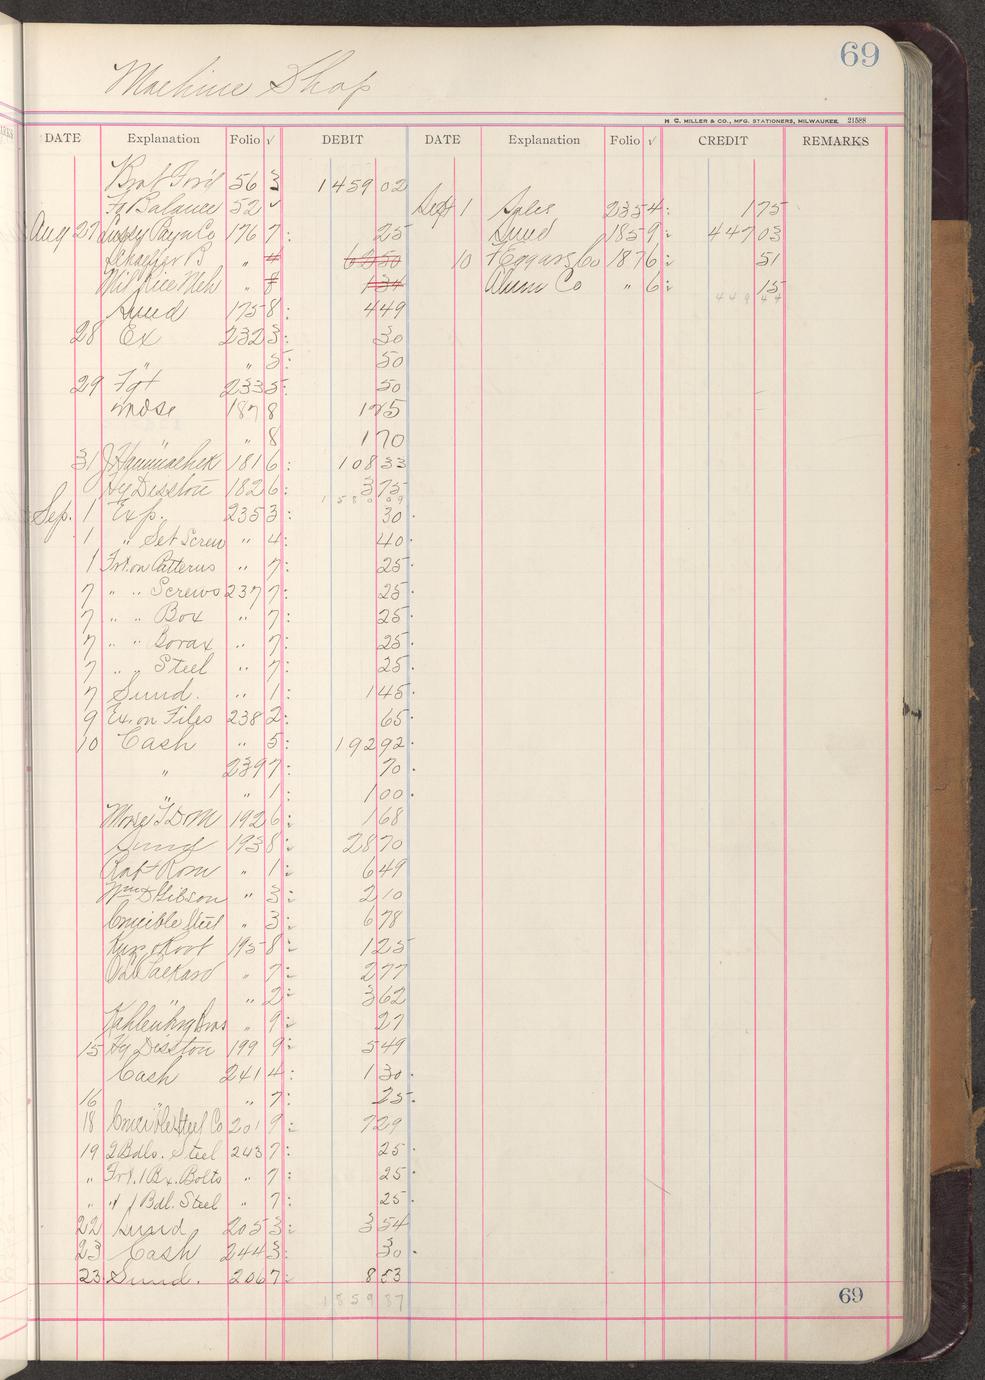 69
Machine Shop
H. C. MILLER & CO., MFG. STATIONERS, MILWAUKEE. 21588
DATE Explanation Folio √ DEBIT DATE Explanation Folio √ CREDIT REMARKS
Brot For'd 56 3 1459 02
Balance 52 ✓ Sept 1 Sales 235 4: 1 75
Aug 27 Co 176 7: 25 Sund 185 9: 447 03
Schaeffer B " 4 62 50 10 Co 187 6: 51
Mil " 8 1 34 Alum Co " 6: 15
449 44
Sund 175 8: 4 49
28 Ex 232 3: 30
" " 5: 50
29 Fgt 233 5: 50
Mdse 187 8 1 25
" 8 1 70
31 181 6: 108 33
Hy Disston 182 6: 3 75
Sep. 1 Exp. 235 3: 30
1 " Set Screw " 4: 40
1 Frt. on Patterns " 7: 25
7 " " Screws 237 7: 25
7 " " Box " 7: 25
7 " " Borax " 7: 25
7 " " Steel " 7: 25
7 Sund. " 1: 1 45
9 Ex. on Files 238 2: 65
10 Cash " 5: 192 92
" 239 7: 70
" " 1: 1 00
Morse T D & M 192 6: 1 68
Sund 193 8: 28 70
" 1: 6 49
Wm D Gibson " 3: 2 10
Crucible Steel " 3: 6 78
Root 195 8: 1 25
Packard " 7: 2 77
" " 2: 3 62
Kahlenberg Bros " 9: 27
15 Hy Disston 199 9: 5 49
Cash 241 4: 1 30
16 " " 7: 25
18 Crucible Steel Co 201 9: 7 29
19 2 Bdls. Steel 243 7: 25
" Frt. 1 Bx. Bolts " 7: 25
" " 1 Bdl. Steel " 7: 25
22 Sund. 205 3: 3 54
23 Cash 244 3: 30
23 Sund. 206 7: 8 53
1859 87
69